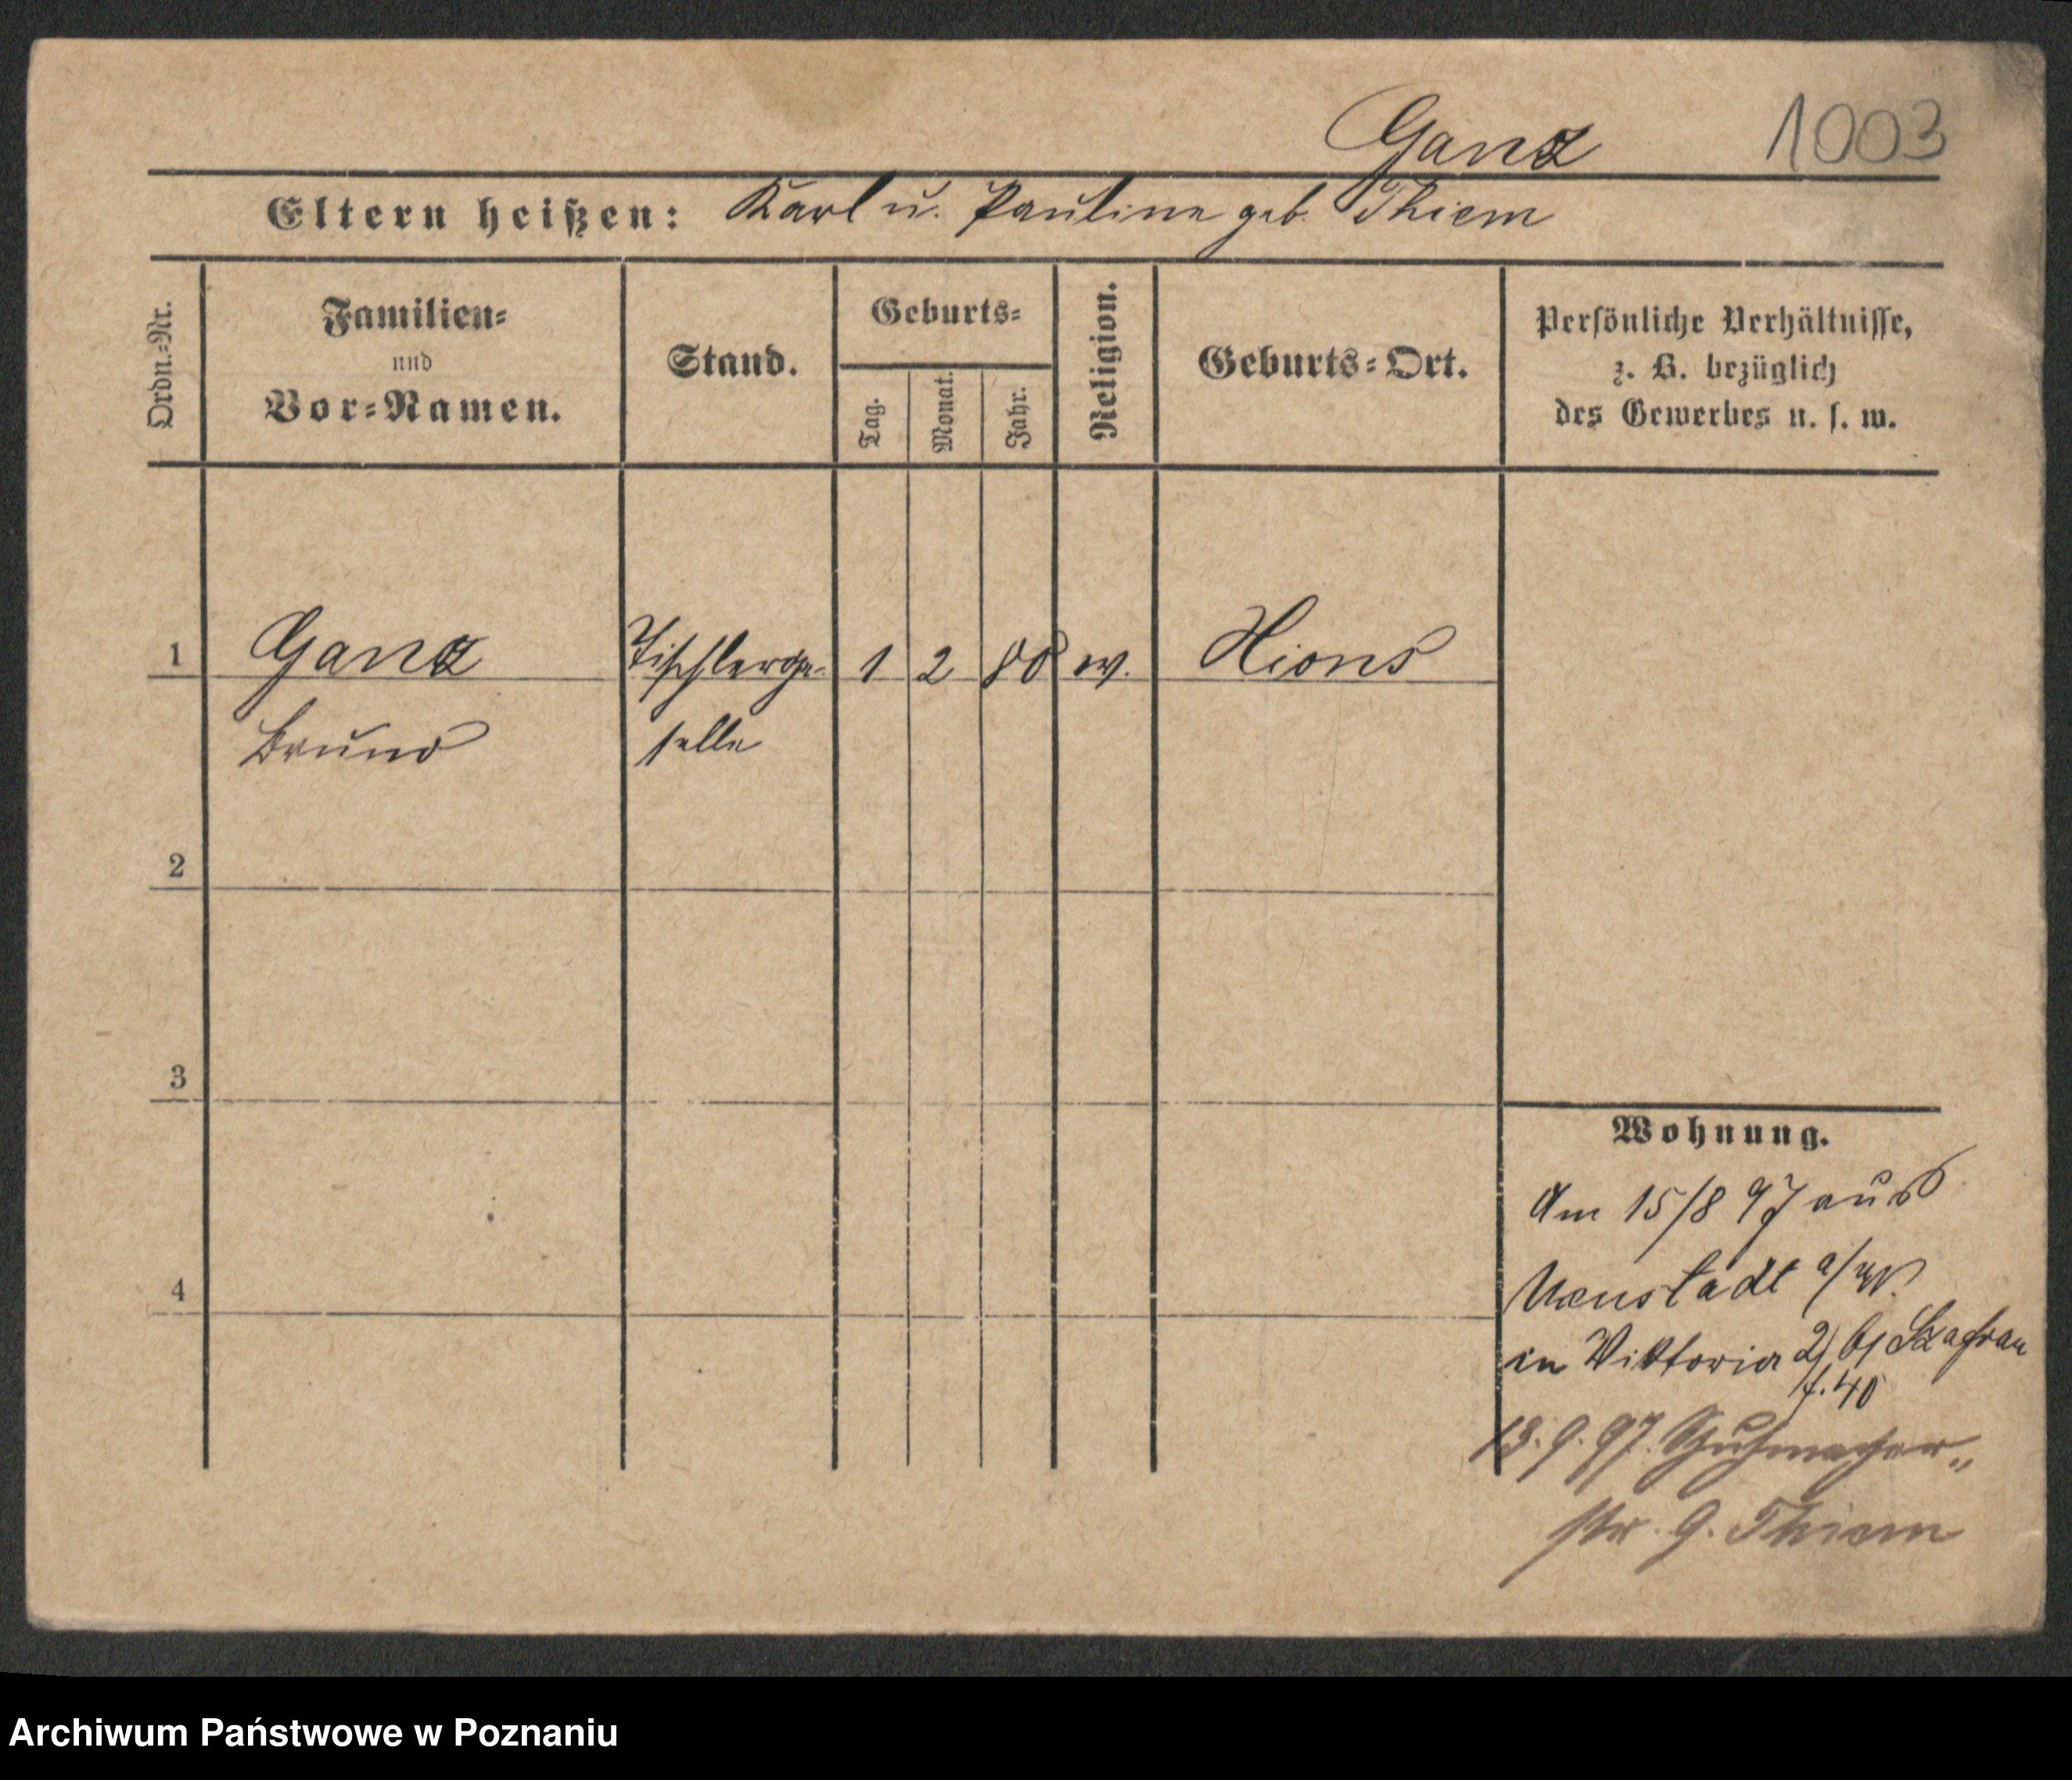 Ganz 1003
Eltern heißen: Karl u. Pauline geb. Thiem
Ordn.=Nr. Familien= und Vor=Namen. Stand. Geburts= Tag. Monat. Jahr. Religion. Geburts=Ort. Persönliche Verhältnisse, z. B. bezüglich des Gewerbes u. s. w.
1 Ganz Tischlerge- 1 2 80 ev. Xions
Bruno selle
2
3
4
Wohnung.
Am 15/8 97 aus
Neustadt a/W.
in Viktoria 21 bei Szafran
f. 40
13. 9. 97. Schuhmacher„
str. 9. Thiem
Archiwum Państwowe w Poznaniu